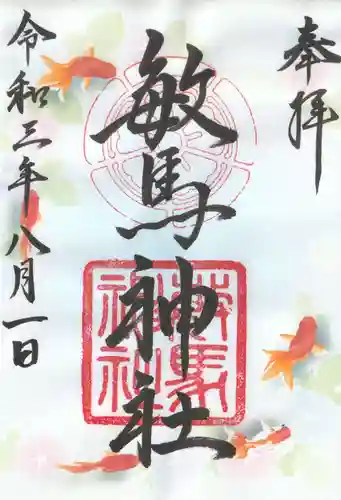 奉拝
敏馬神社
敏馬
神社
令和三年八月一日